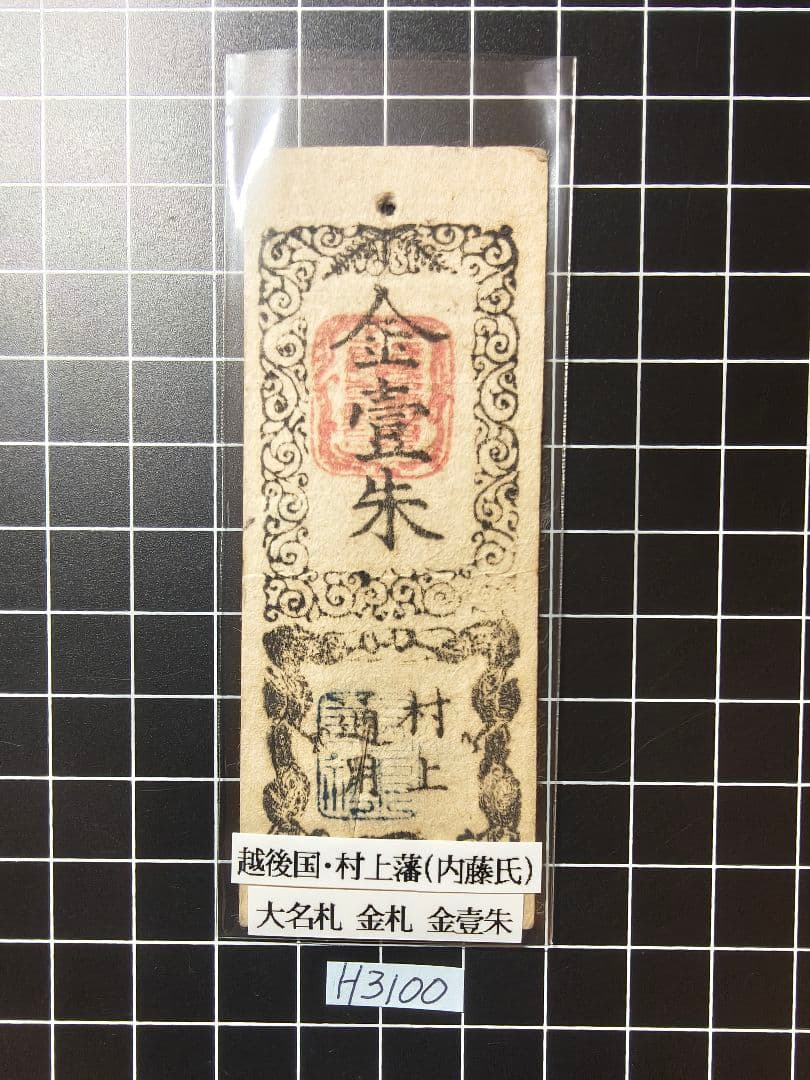 金壹朱
村上
通用
越後国・村上藩(内藤氏)
大名札 金札 金壹朱
H3100